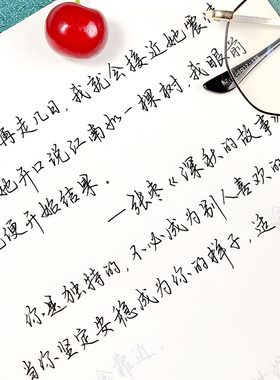 再走几日，我就会接近她震
她开口说江南如一棵树，我眼前
便开始结果。
—张枣《深秋的故事》
你是独特的，不必成为别人喜欢的
当你坚定安稳成为你的样子，造